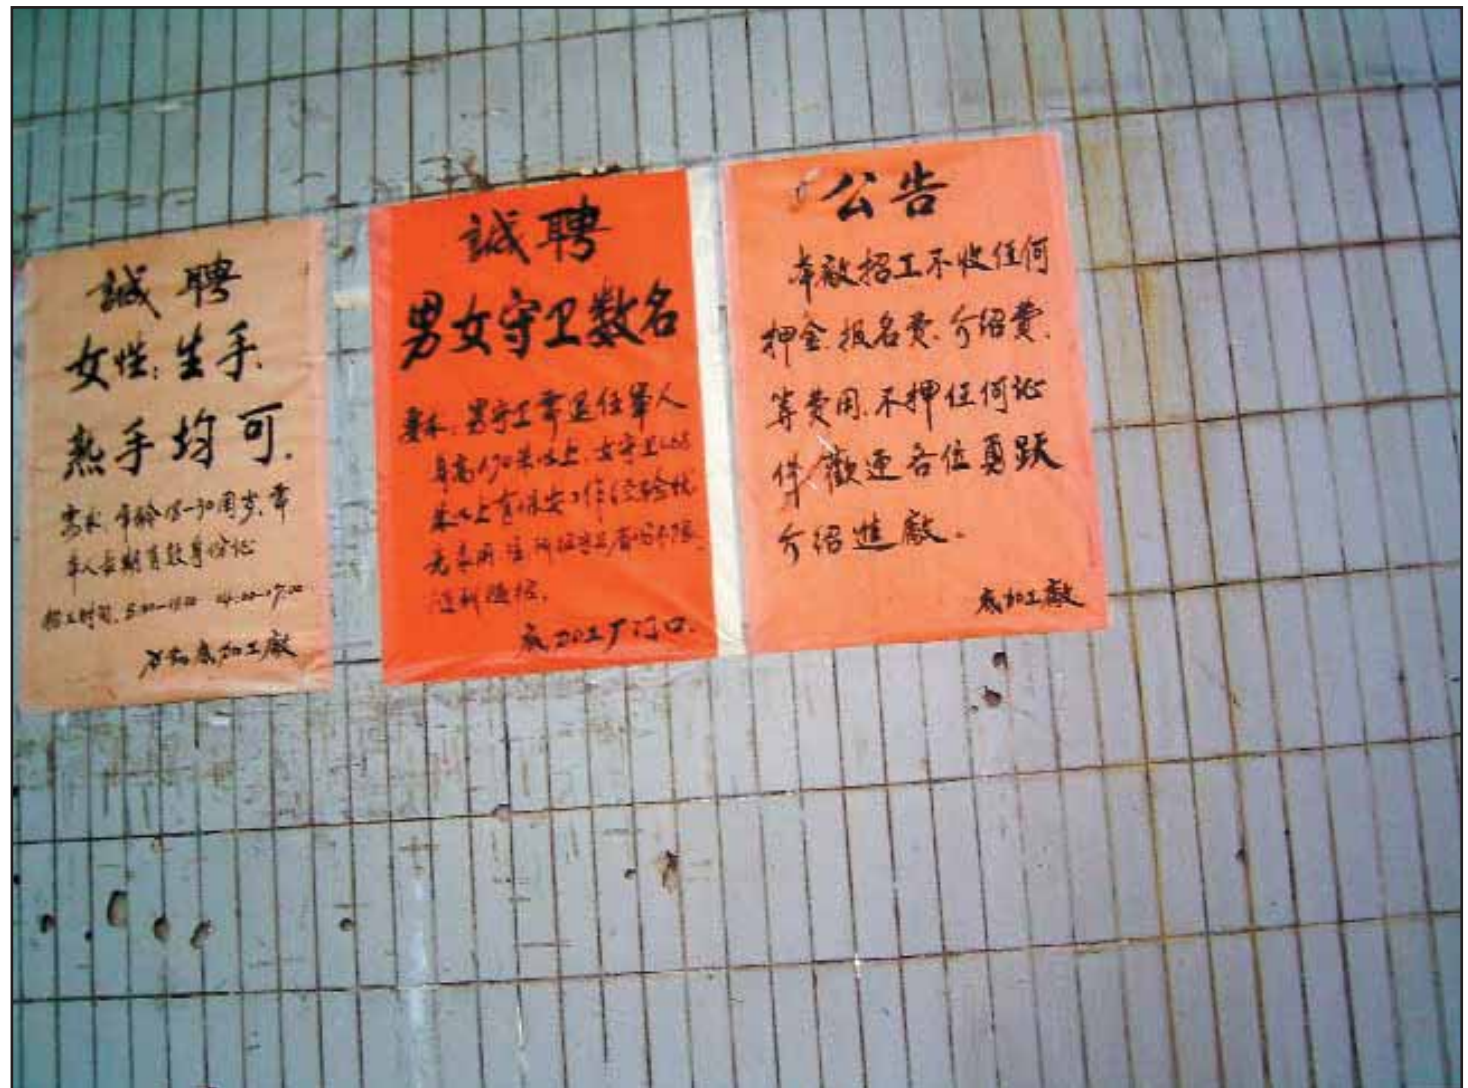 誠聘
女性：生手、
熱手均可.
年龄18-30周岁，带
本人长期有效身份证
招工时间
底加工廠
誠聘
男女守卫数名
要求：男守卫带退伍军人
身高1.70米以上，女守卫1.65
米以上有保安工作经验优
底加工厂门口.
公告
本廠招工不收任何
押金.报名费.介绍费.
等费用.不押任何证
件 歡迎各位勇跃
介绍進廠.
底加工廠